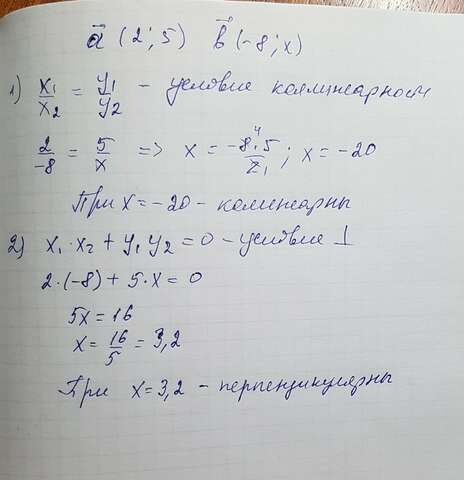 a⃗ (2; 5) b⃗ (-8; x)
1) x₁/x₂ = y₁/y₂ - условие коллинеарности
2/-8 = 5/x => x = -8·5/2; x = -20
При x = -20 - колинеарны
2) x₁·x₂ + y₁y₂ = 0 - условие ⊥
2·(-8) + 5·x = 0
5x = 16
x = 16/5 = 3,2
При x = 3,2 - перпендикулярны